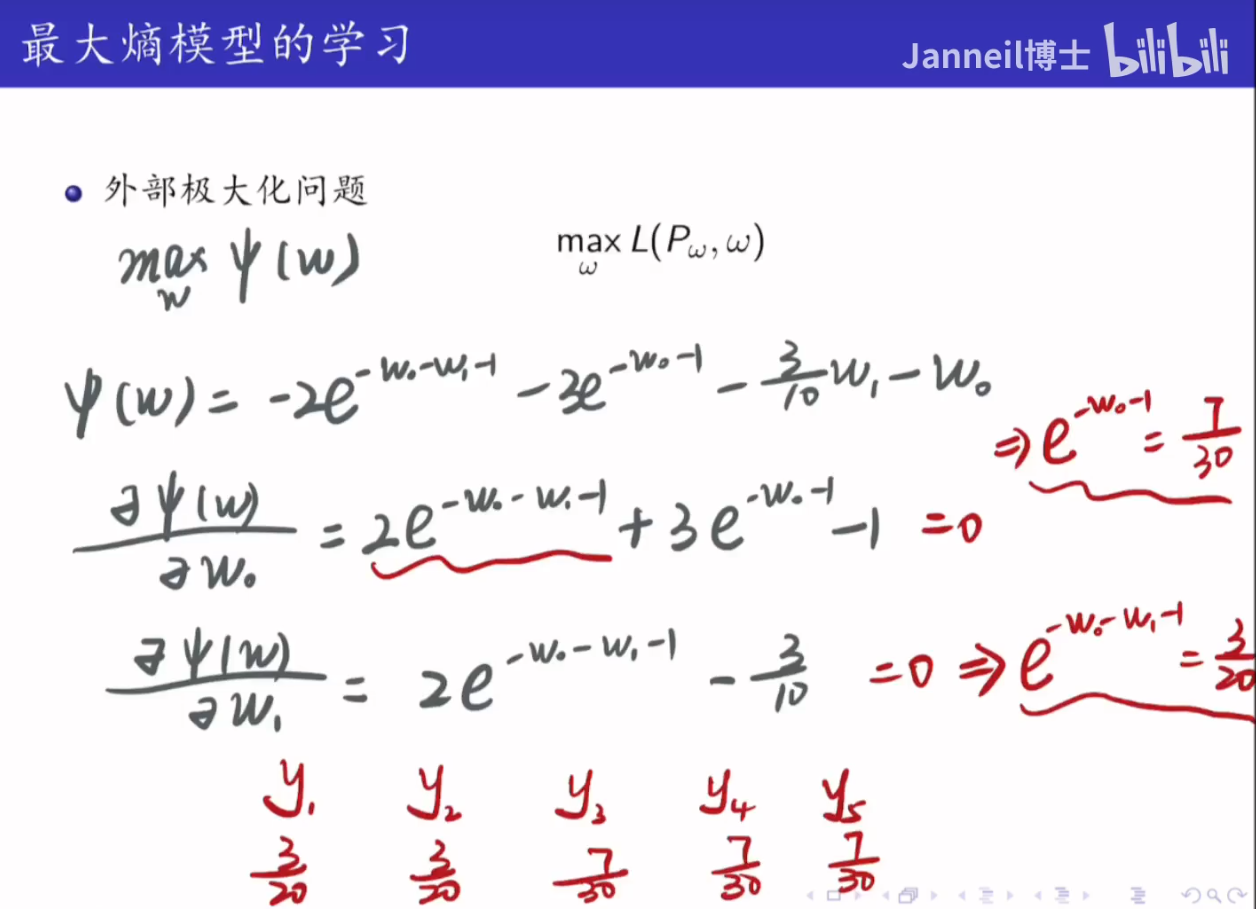 最大熵模型的学习
Janneil博士 bilibili
外部极大化问题
max_w ψ(w)
max_ω L(P_ω, ω)
ψ(w) = -2e^{-w₀-w₁-1} - 3e^{-w₀-1} - 3/10 w₁ - w₀
⇒ e^{-w₀-1} = 7/30
∂ψ(w)/∂w₀ = 2e^{-w₀-w₁-1} + 3e^{-w₀-1} - 1 = 0
∂ψ(w)/∂w₁ = 2e^{-w₀-w₁-1} - 3/10 = 0 ⇒ e^{-w₀-w₁-1} = 3/20
y₁ y₂ y₃ y₄ y₅
3/20 3/20 7/30 7/30 7/30